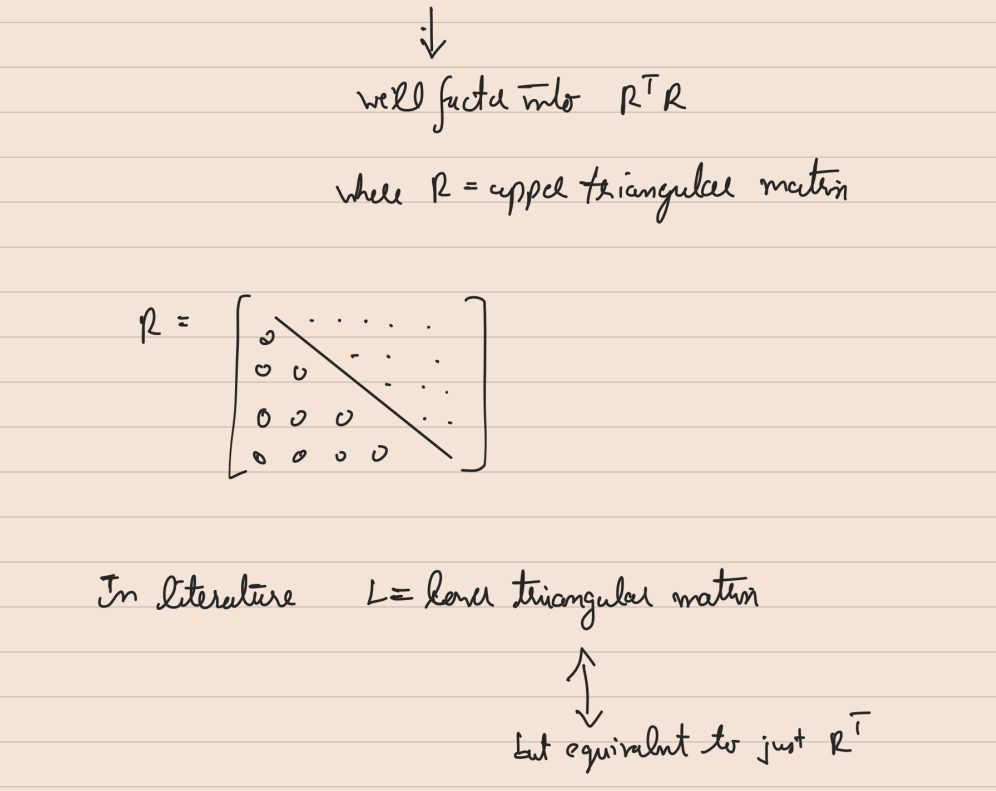 we'll factor into R^T R
where R = upper triangular matrix
R = [ . . . . .
0 . . .
0 0 . . .
0 0 0 . .
0 0 0 0 ]
In literature L = lower triangular matrix
but equivalent to just R^T